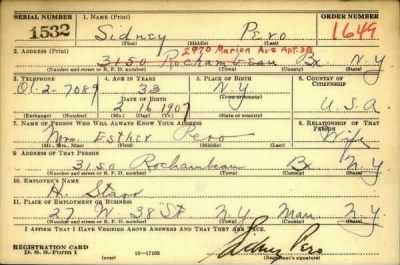 SERIAL NUMBER 1. NAME (Print) ORDER NUMBER
1532 Sidney Pero 1649
(First) (Middle) (Last)
2970 Marion Ave Apt. 3B
2. ADDRESS (Print)
3150 Rochambeau Bx N.Y
(Number and street or R. F. D. number) (Town) (County) (State)
3. TELEPHONE 4. AGE IN YEARS 5. PLACE OF BIRTH 6. COUNTRY OF CITIZENSHIP
Ol. 2-7089 33 N.Y
DATE OF BIRTH
2 16 1907 U.S.A.
(Exchange) (Number) (Mo.) (Day) (Yr.) (State or country)
7. NAME OF PERSON WHO WILL ALWAYS KNOW YOUR ADDRESS 8. RELATIONSHIP OF THAT PERSON
Mrs. Esther Pero Wife
(Mr., Mrs., Miss) (First) (Middle) (Last)
9. ADDRESS OF THAT PERSON
3150 Rochambeau Bx N.Y.
(Number and street or R. F. D. number) (Town) (County) (State)
10. EMPLOYER'S NAME
H.
11. PLACE OF EMPLOYMENT OR BUSINESS
27 W. 38 St N.Y Man N.Y.
(Number and street or R. F. D. number) (Town) (County) (State)
I AFFIRM THAT I HAVE VERIFIED ABOVE ANSWERS AND THAT THEY ARE TRUE.
REGISTRATION CARD
D. S. S. Form 1 16-17105 Sidney Pero
(over) (Registrant's signature)